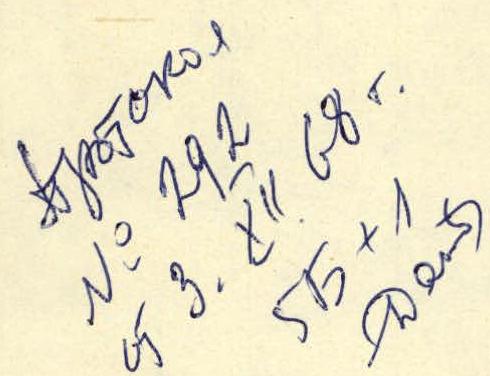 Протокол
№ 292
от 3. XII. 68 г.
5Б + 1